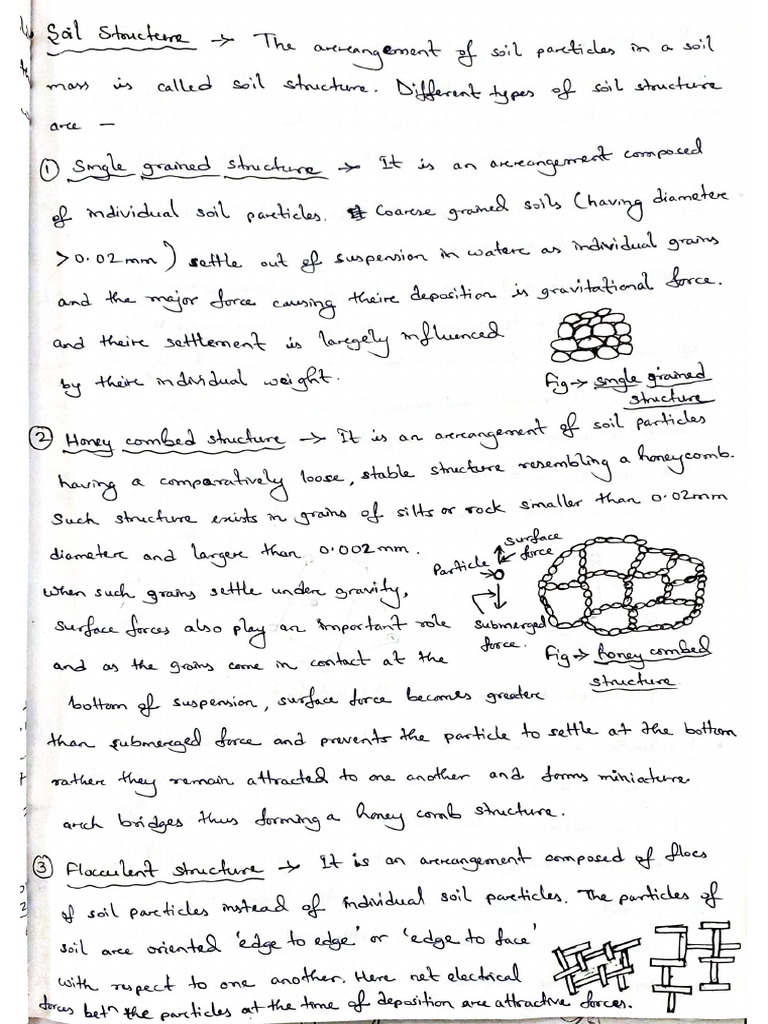 Soil Structure → The arrangement of soil particles in a soil
mass is called soil structure. Different types of soil structure
are —
① Single grained structure → It is an arrangement composed
of individual soil particles. Coarse grained soils (having diameter
>0.02mm) settle out of suspension in water as individual grains
and the major force causing their deposition is gravitational force.
and their settlement is largely influenced
by their individual weight.
Fig → single grained
structure
② Honey combed structure → It is an arrangement of soil particles
having a comparatively loose, stable structure resembling a honeycomb.
Such structure exists in grains of silts or rock smaller than 0.02mm
diameter and larger than 0.002mm.
When such grains settle under gravity,
surface forces also play an important role
and as the grains come in contact at the
surface
force
Particle
submerged
force.
Fig → honey combed
structure
bottom of suspension, surface force becomes greater
than submerged force and prevents the particle to settle at the bottom
rather they remain attracted to one another and forms miniature
arch bridges thus forming a honey comb structure.
③ Flocculent structure → It is an arrangement composed of flocs
of soil particles instead of individual soil particles. The particles of
soil are oriented 'edge to edge' or 'edge to face'
with respect to one another. Here net electrical
forces betn the particles at the time of deposition are attractive forces.